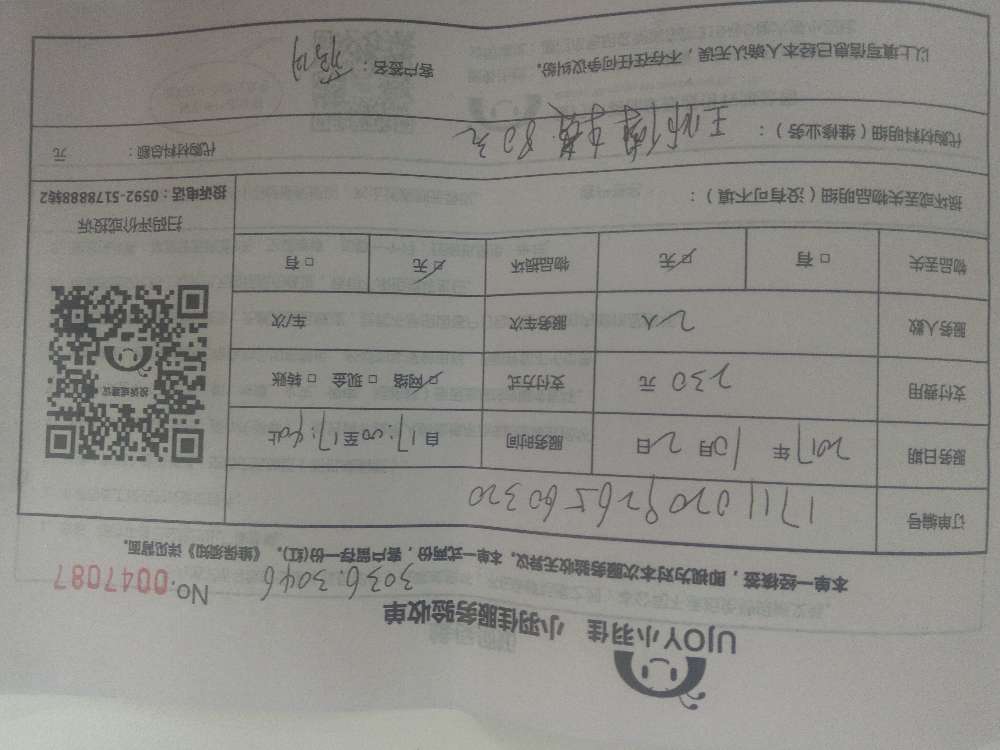 UJOY小羽佳 小羽佳服务验收单
3036.3046
No.0047087
本单一经核签，即视为对本次服务验收无异议。本单一式两份，客户留存一份(红)。《维保须知》详见背面。
订单编号 1711020926560320
服务日期 2017年 10月 2日 服务时间 自17:00至17:40止
支付费用 230元 支付方式 ☑网络 □现金 □转账
服务人数 2人 服务车次 车/次
物品丢失 □有 ☑无 物品损坏 ☑无 □有
投诉或建议
扫码评价或投诉
投诉电话：0592-5178888转2
损坏或丢失物品明细（没有可不填）：
代购材料明细（维修业务）： 80元
代购材料总额： 元
以上填写信息已经本人确认无误，不存在任何争议纠纷。 客户签名：